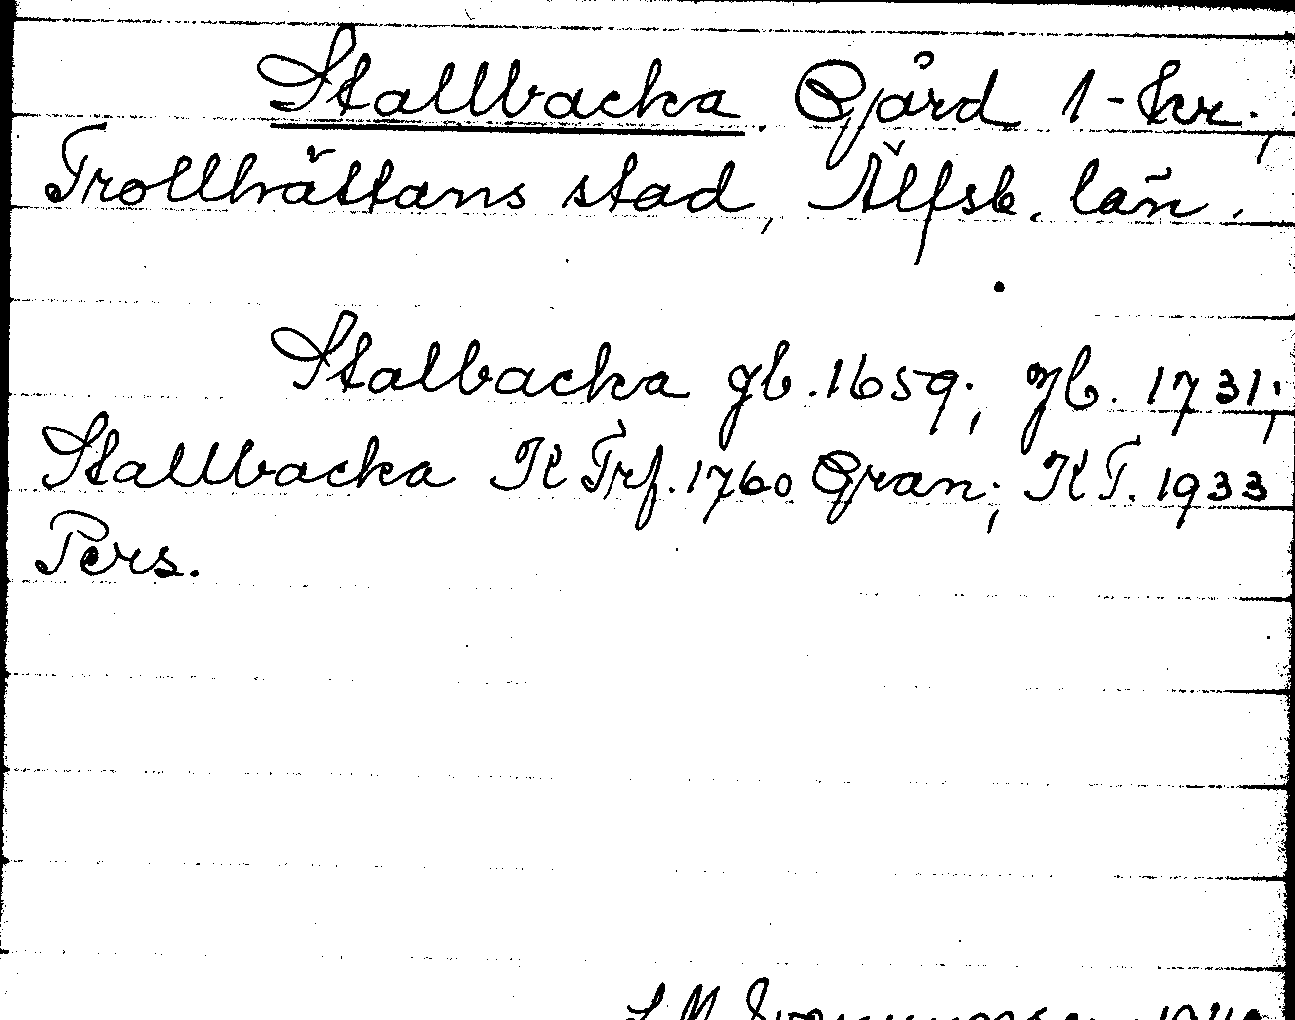 Stallbacka. Gård 1 - kr.,
Trollhättans stad, Älfsb. län.
Stalbacka gb. 1659; jb. 1731;
Stallbacka K Trf. 1760 Gran; K T. 1933
Pers.